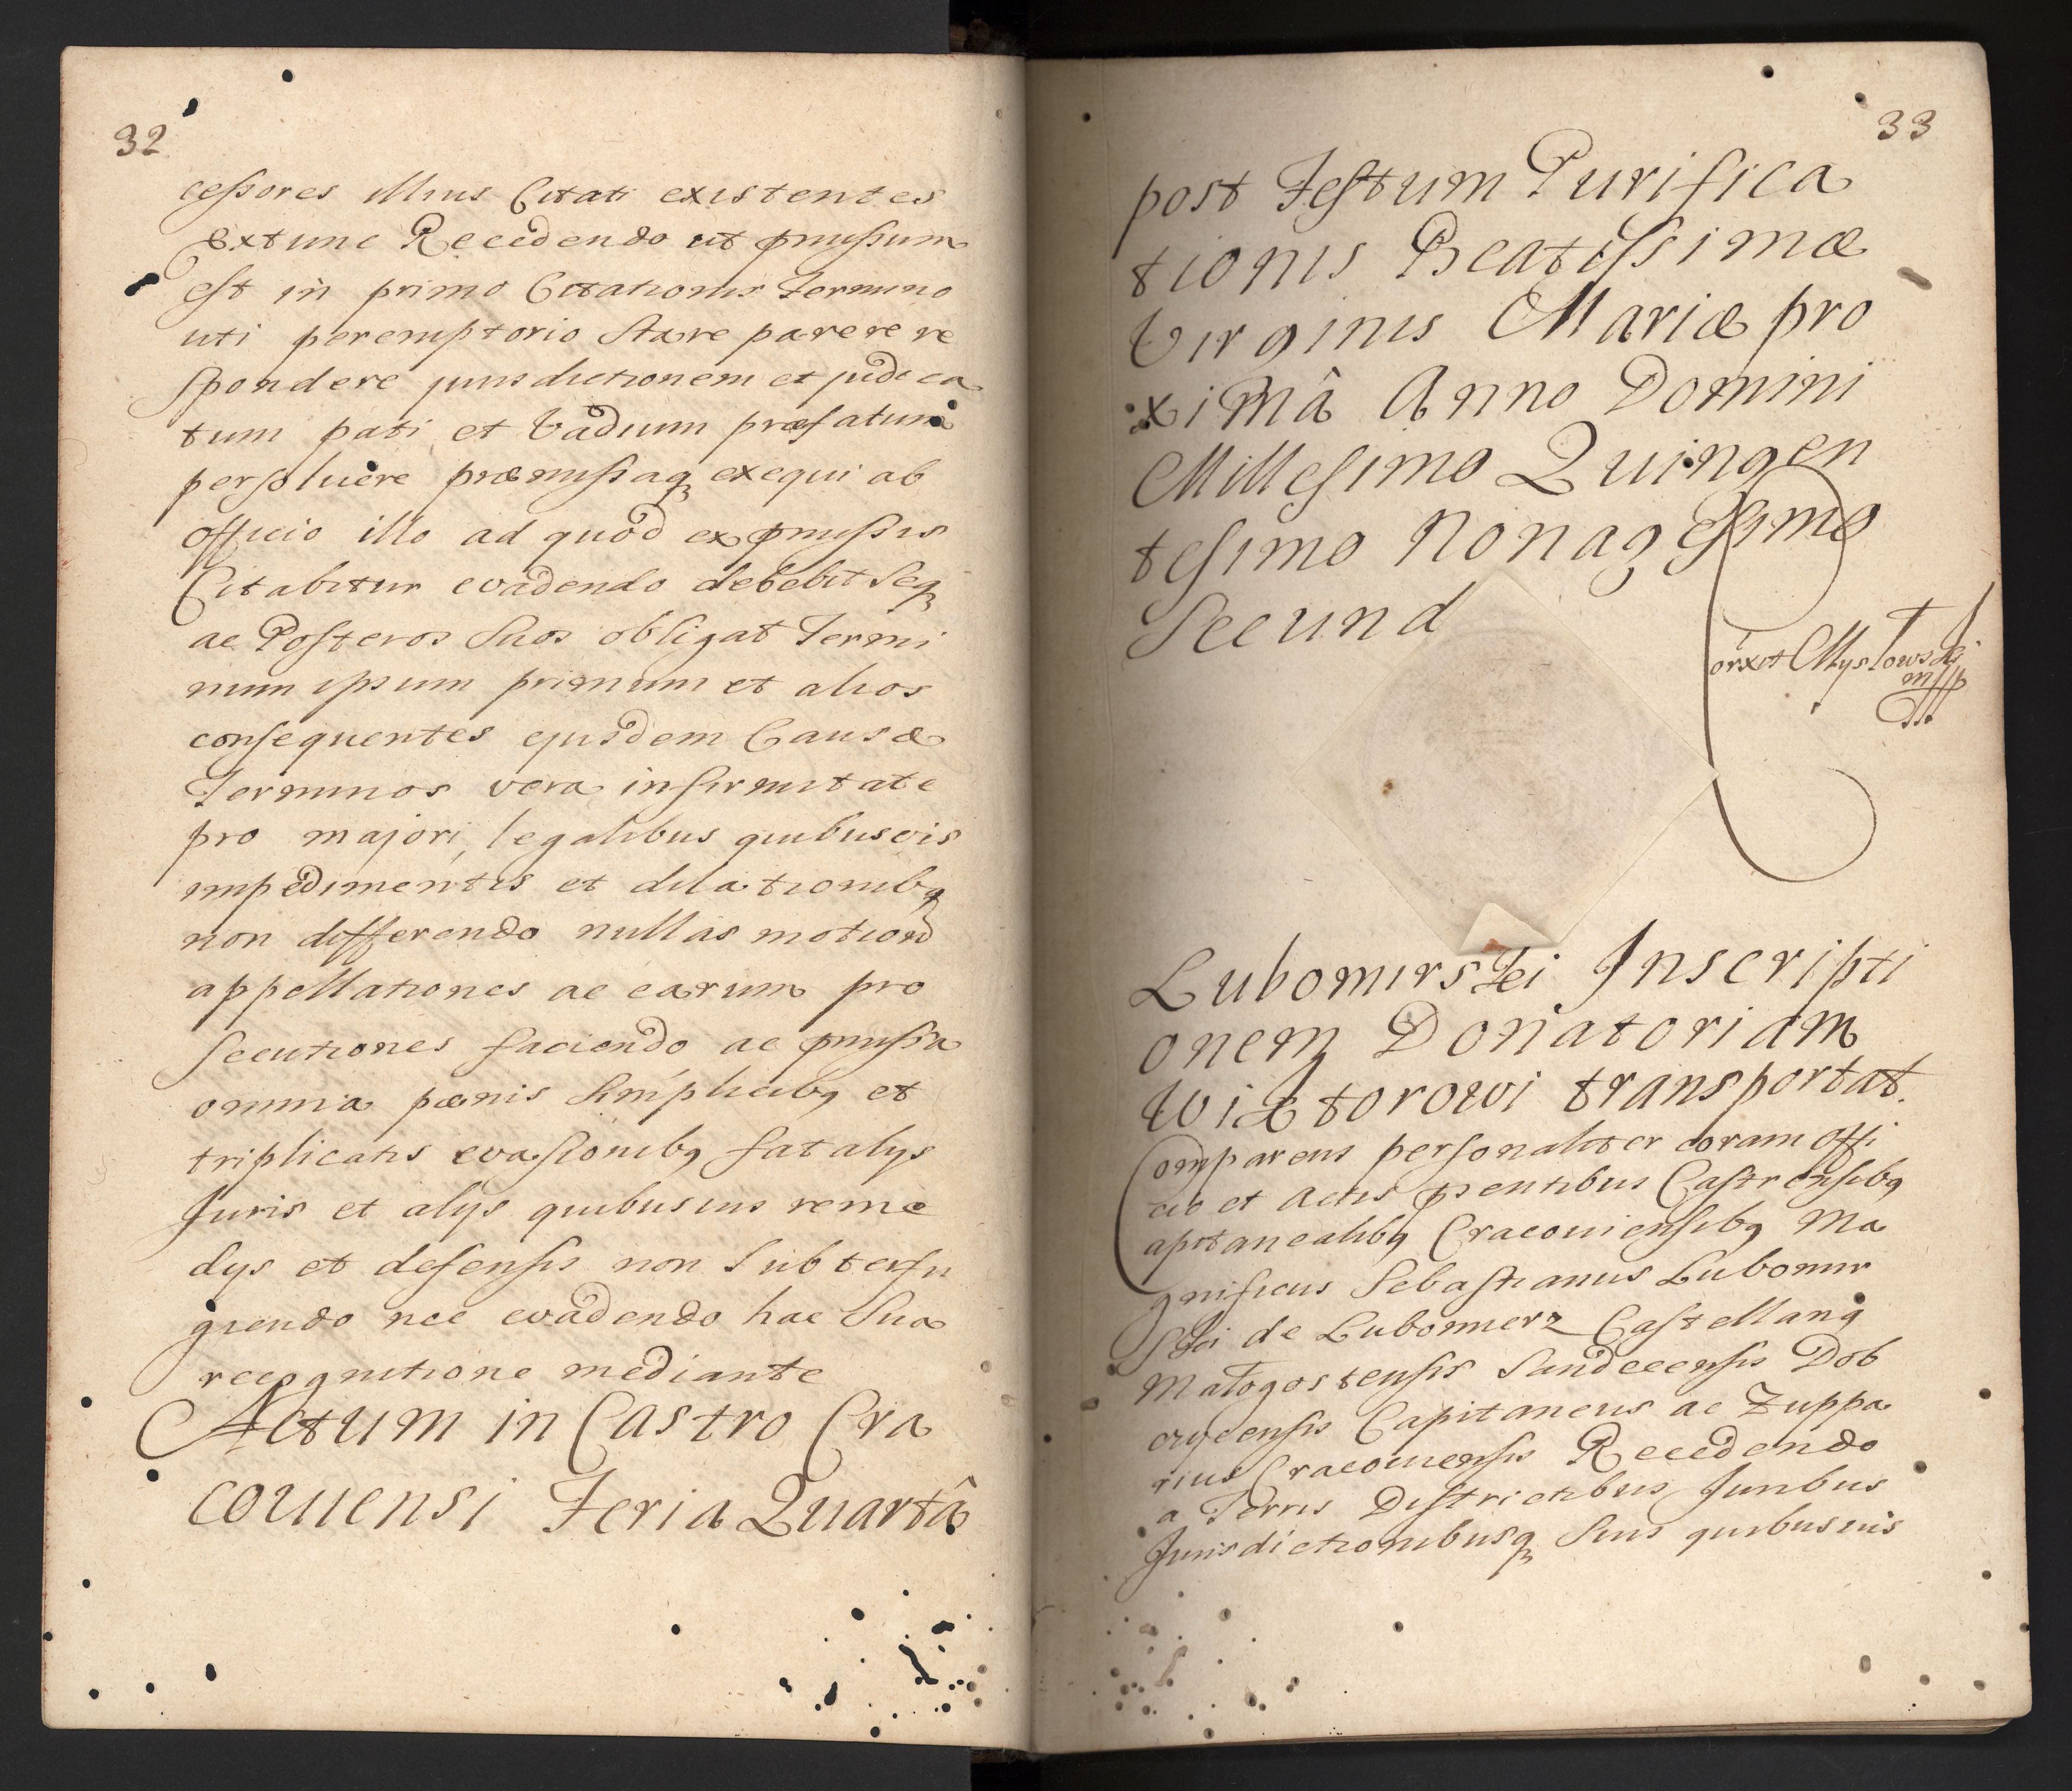 32
cessores illius Citati existentes
Extunc Recedendo ut pmissum
est in primo Citationis Termino
uti peremptorio stare parere re
spondere jurisdictionem et judica
tum pati et Vadium præfatum
persoluere præmissaq exequi ab
officio illo ad quod ex pmissis
Citabitur evadendo debebit Seq
ac Posteros Suos obligat Termi
num ipsum primum et alios
consequentes ejusdem Causæ
Terminos vera infirmitate
pro majori, legalibus quibusvis
impedimentis et dilationibq
non differendo nullas motiond
appellationes ac earum pro
secutiones faciendo ac pmissa
omnia pœnis Simplicibq et
triplicatis evasionibq fatalys
Juris et alys quibusuis reme
dys et defensis non Subterfu
giendo nec evadendo hac Sua
recognitione mediante
Actum in Castro Cra
couiensi Feria Quartâ
33
post Festum Purifica
tionis Beatissimæ
Virginis Mariæ pro
ximâ Anno Domini
Millesimo Quingen
tesimo Nonagesimo
Secund
Corxit Mysłowski
mpp
Lubomirski Inscripti
onem Donatoriam
Wiktorowi transportat.
Comparens personaliter coram Offi
cio et Actis pntibus Castrensibq
Capitanealibq Cracouiensibq Ma
gnificus Sebastianus Lubomir
ski de Lubomierz Castellanq
Małogostensis Sandecensis Dob
czycensis Capitaneus ac Zuppa
rius Cracouiensis Recedendo
a Terris Districtibus Juribus
Jurisdictionibusq Suis quibusuis